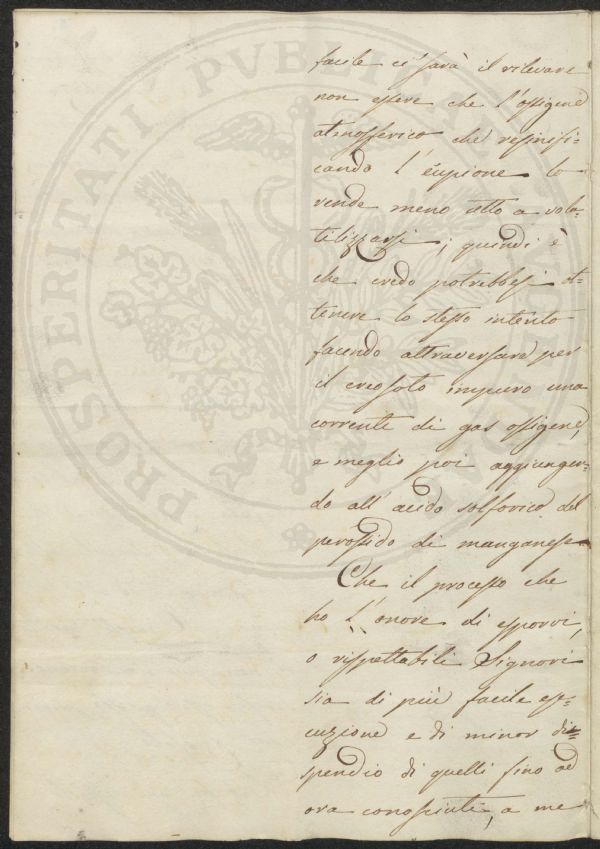 facile ci sarà il rilevare
non essere che l'ossigene
atmosferico che resinifi-
cando l'eupione lo
rende meno atto a vola-
tilizzarsi; quindi è
che credo potrebbesi ot-
tenere lo stesso intento
facendo attraversare per
il creosoto impuro una
corrente di gas ossigene,
e meglio poi aggiungen-
do all'acido solforico del
perossido di manganese.
Che il processo che
ho l'onore di esporvi,
o rispettabili Signori
sia di più facile ese-
cuzione e di minor di-
spendio di quelli fino ad
ora conosciuti, a me
PROSPERITATI PUBLICAE